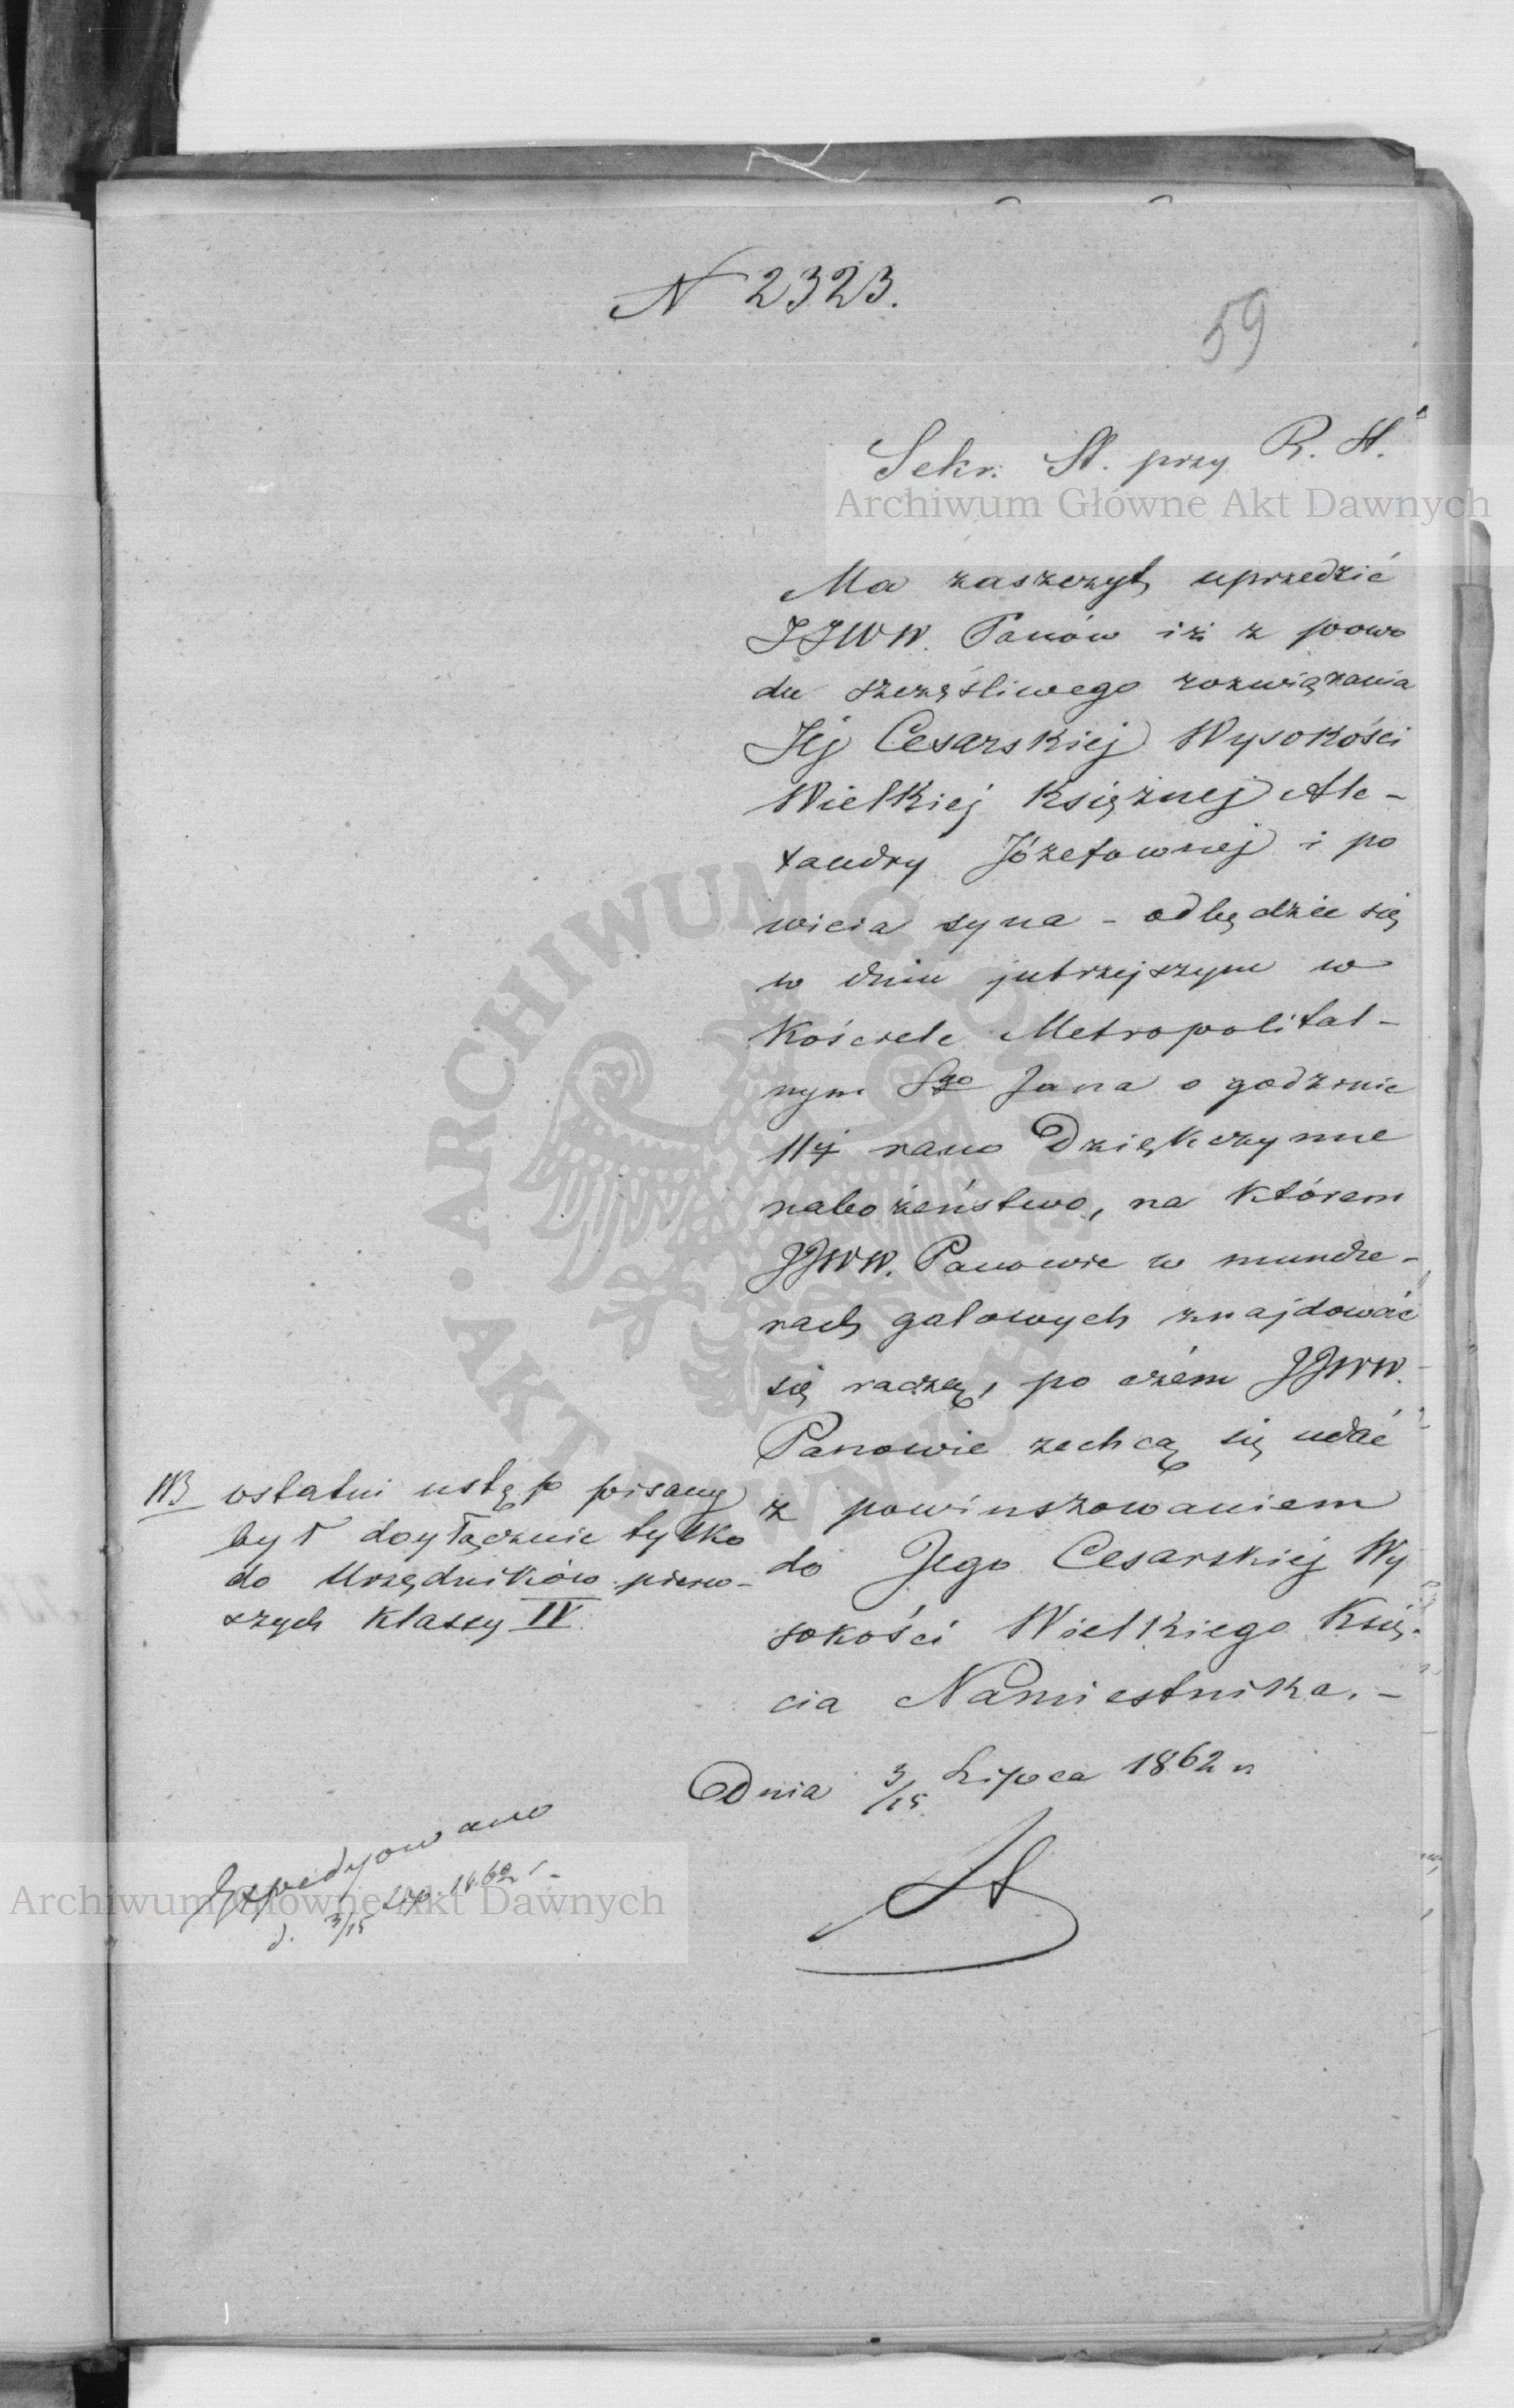 N 2323.
59
Sekr. St. przy R. St.
Archiwum Główne Akt Dawnych
Ma zaszczyt uprzedzić
JJWW. Panów iż z powo
du szczęśliwego rozwiązania
Jej Cesarskiej Wysokości
Wielkiej Księżnej Ale-
xandry Józefownej i po
wicia syna - odbędzie się
w dniu jutrzejszym w
Kościele Metropolital-
nym Sgo Jana o godzinie
11ej rano Dziękczynne
nabożeństwo, na którem
JJWW. Panowie w mundu-
rach galowych znajdować
się raczą, po czém JJWW.
Panowie zechcą się udać
z powinszowaniem
do Jego Cesarskiej Wy
sokości Wielkiego Księ-
cia Namiestnika. -
NB ostatni ustęp pisany
był tylko
do Urzędników pierw-
szych klassy IV
Dnia 3/15 Lipca 1862 r
Expedyowano
d. 3/15 Lip. 1862 r.
Archiwum Główne Akt Dawnych
ARCHIWUM GŁÓWNE AKT DAWNYCH